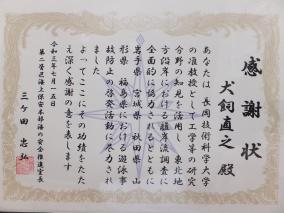 感謝状
犬飼直之 殿
あなたは長岡技術科学大学
の准教授として工学等の研究
分野の知見を活用し東北地
方沿岸における離岸流調査に
全面的に協力されるとともに
岩手県 宮城県 秋田県 山
形県 福島県における遊泳事
故防止の啓発活動に尽力され
ました
よってここにその功績をたた
え深く感謝の意を表します
令和三年七月一五日
第二管区海上保安本部海の安全推進室長
三ケ田 忠弘